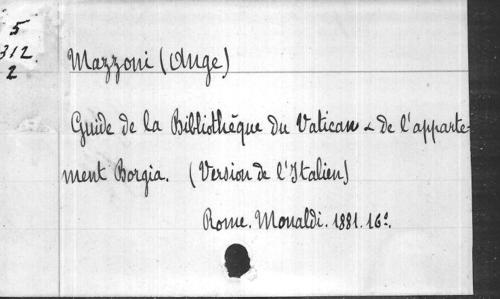 5
312.
2
Mazzoni (Ange)
Guide de la Bibliothéque du Vatican & de l'apparte-
ment Borgia. (Version de l'Italien)
Rome. Monaldi. 1881. 16º.